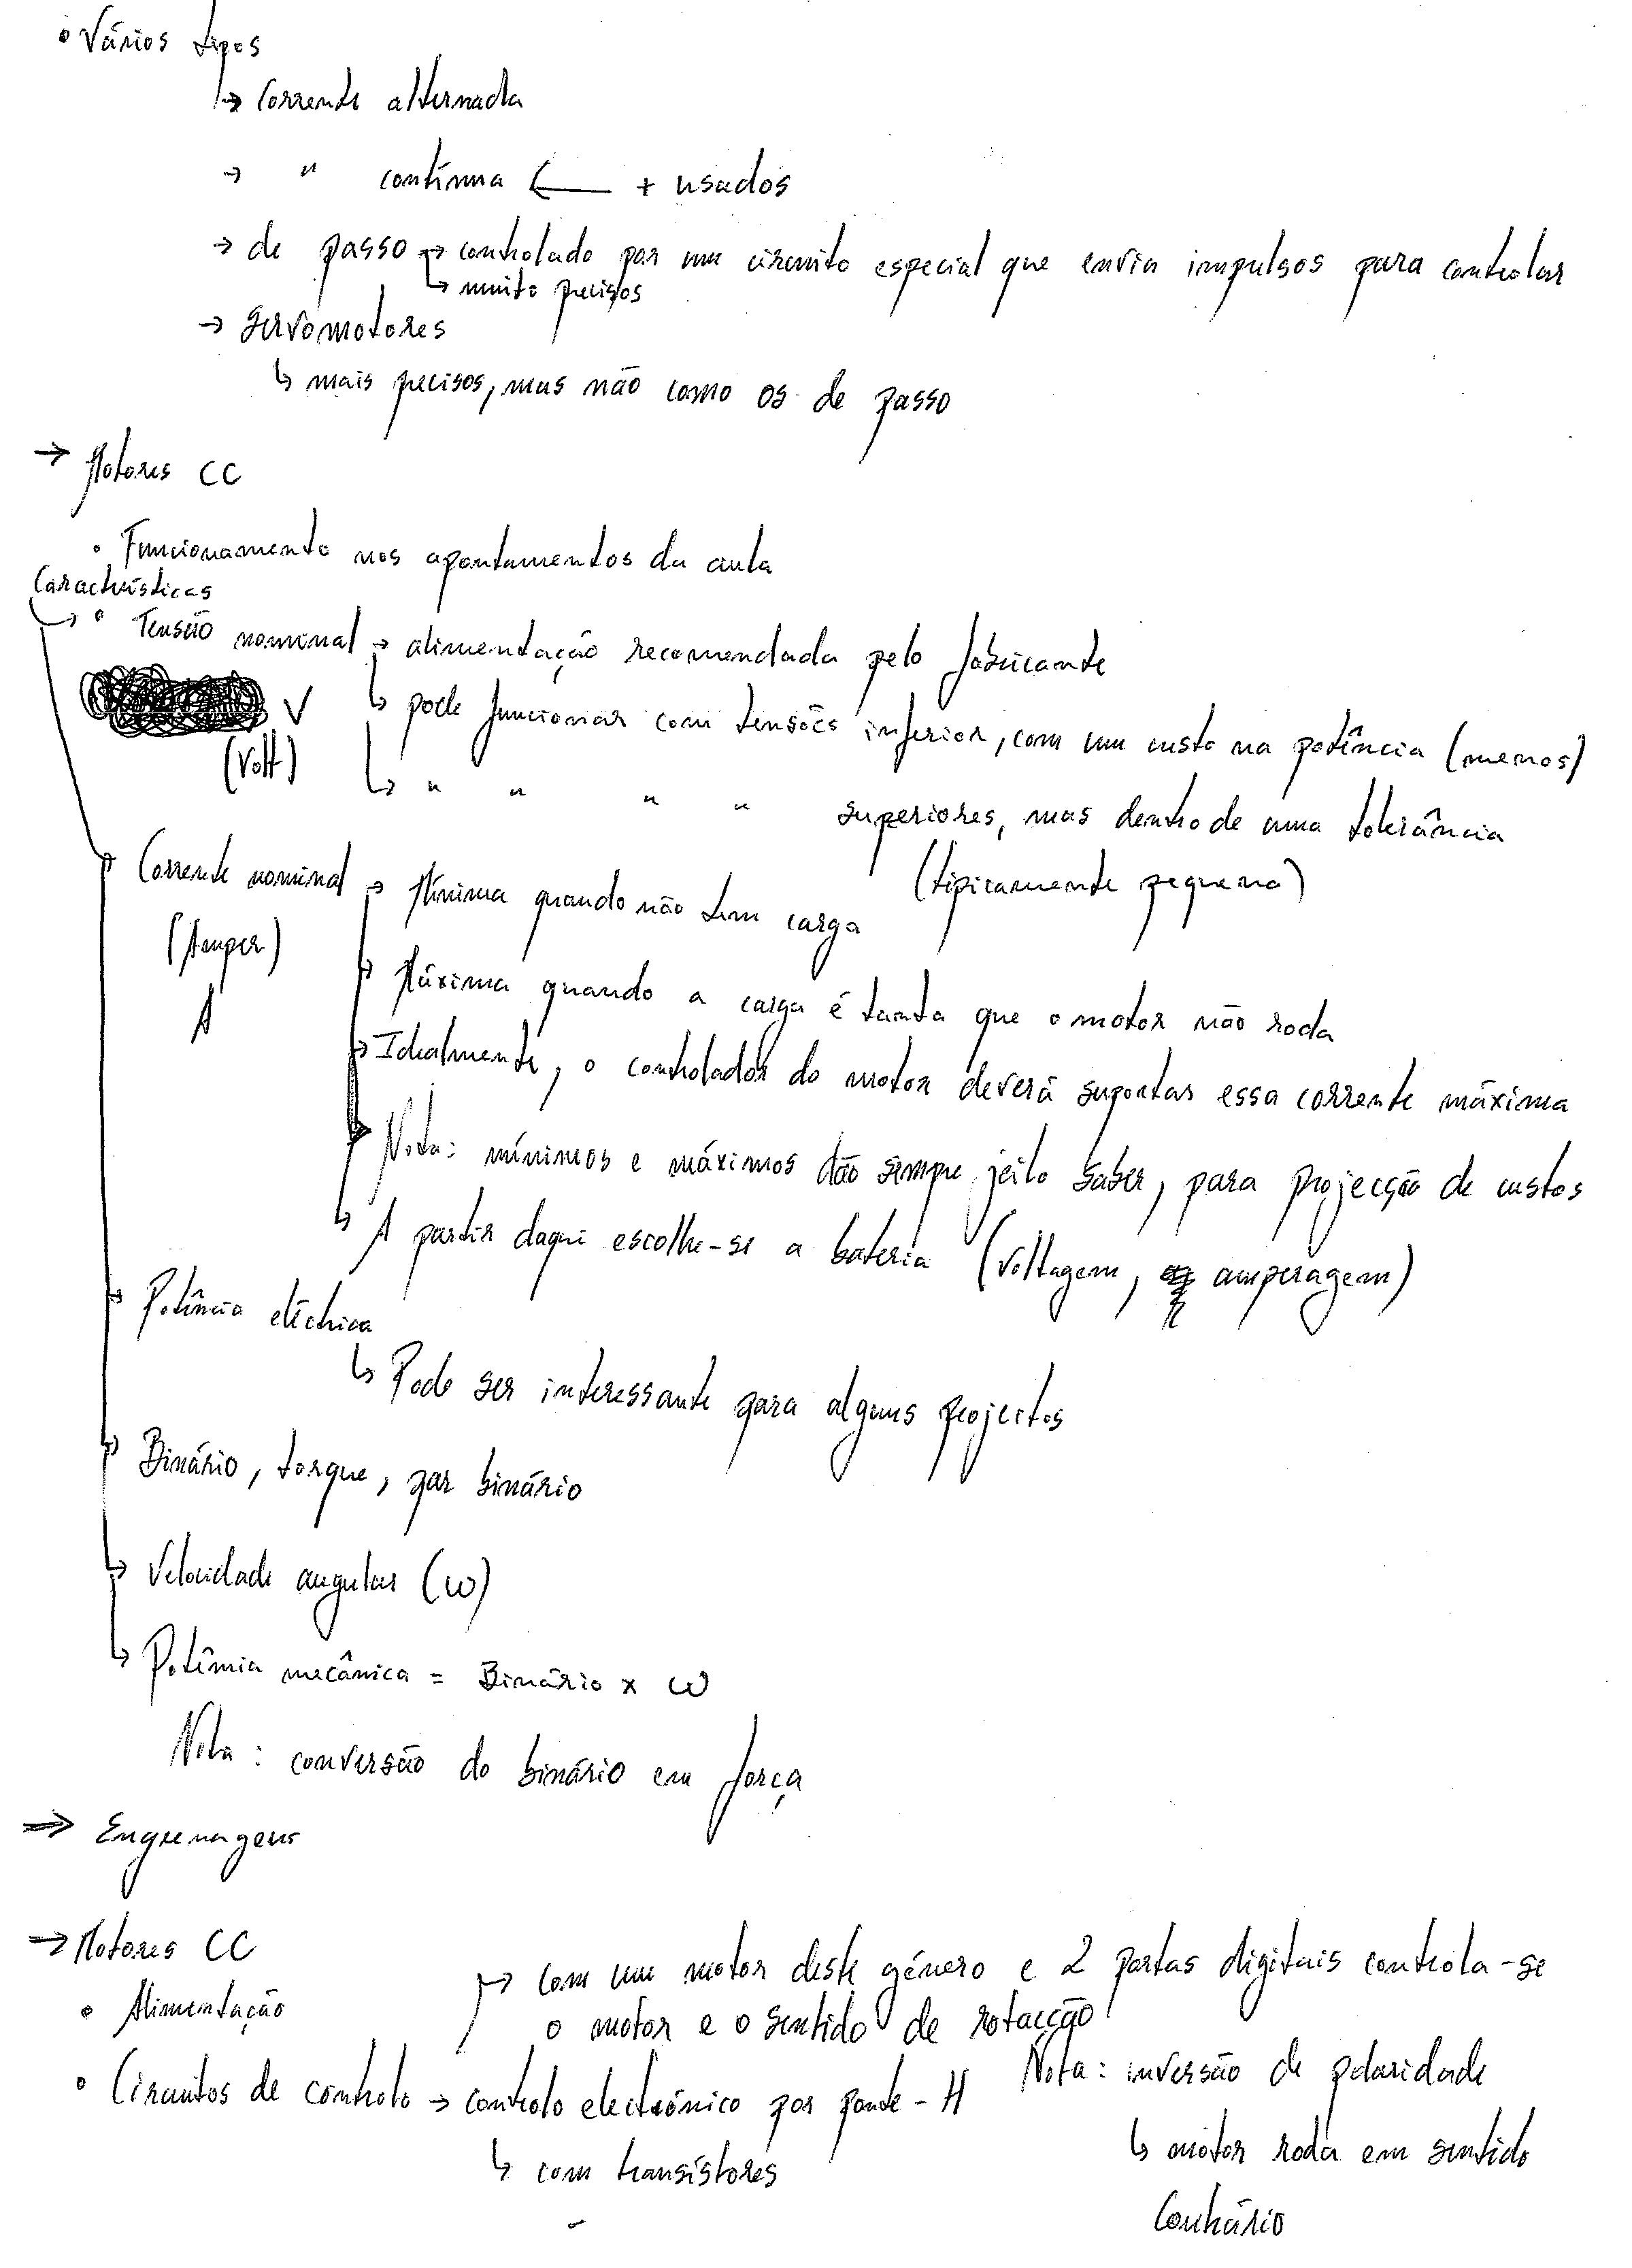 • Vários tipos
↳ Corrente alternada
→ " contínua ← + usados
→ de passo → controlado por um circuito especial que envia impulsos para controlar
↳ muito precisos
→ Servomotores
↳ mais precisos, mas não como os de passo
→ Motores CC
• Funcionamento nos apontamentos da aula
Características
↳ • Tensão nominal → alimentação recomendada pelo fabricante
V ↳ pode funcionar com tensões inferior, com um custo na potência (menos)
(Volt) ↳ " " " " superiores, mas dentro de uma tolerância
(tipicamente pequena)
↳ Corrente nominal → Mínima quando não tem carga
(Amper)
A
↳ Máxima quando a carga é tanta que o motor não roda
↳ Idealmente, o controlador do motor deverá suportar essa corrente máxima
↳ Nota: mínimos e máximos dão sempre jeito saber, para projecção de custos
↳ A partir daqui escolhe-se a bateria (Voltagem, amperagem)
↳ Potência eléctrica
↳ Pode ser interessante para alguns projectos
↳ Binário, torque, par binário
↳ Velocidade angular (ω)
↳ Potência mecânica = Binário x ω
Nota: conversão do binário em força
⇒ Engrenagens
→ Motores CC
• Alimentação
↱ com um motor deste género e 2 portas digitais controla-se
o motor e o sentido de rotacção
• Circuitos de controlo → controlo electrónico por ponte-H
↳ com transístores
Nota: inversão de polaridade
↳ motor roda em sentido
Contrário